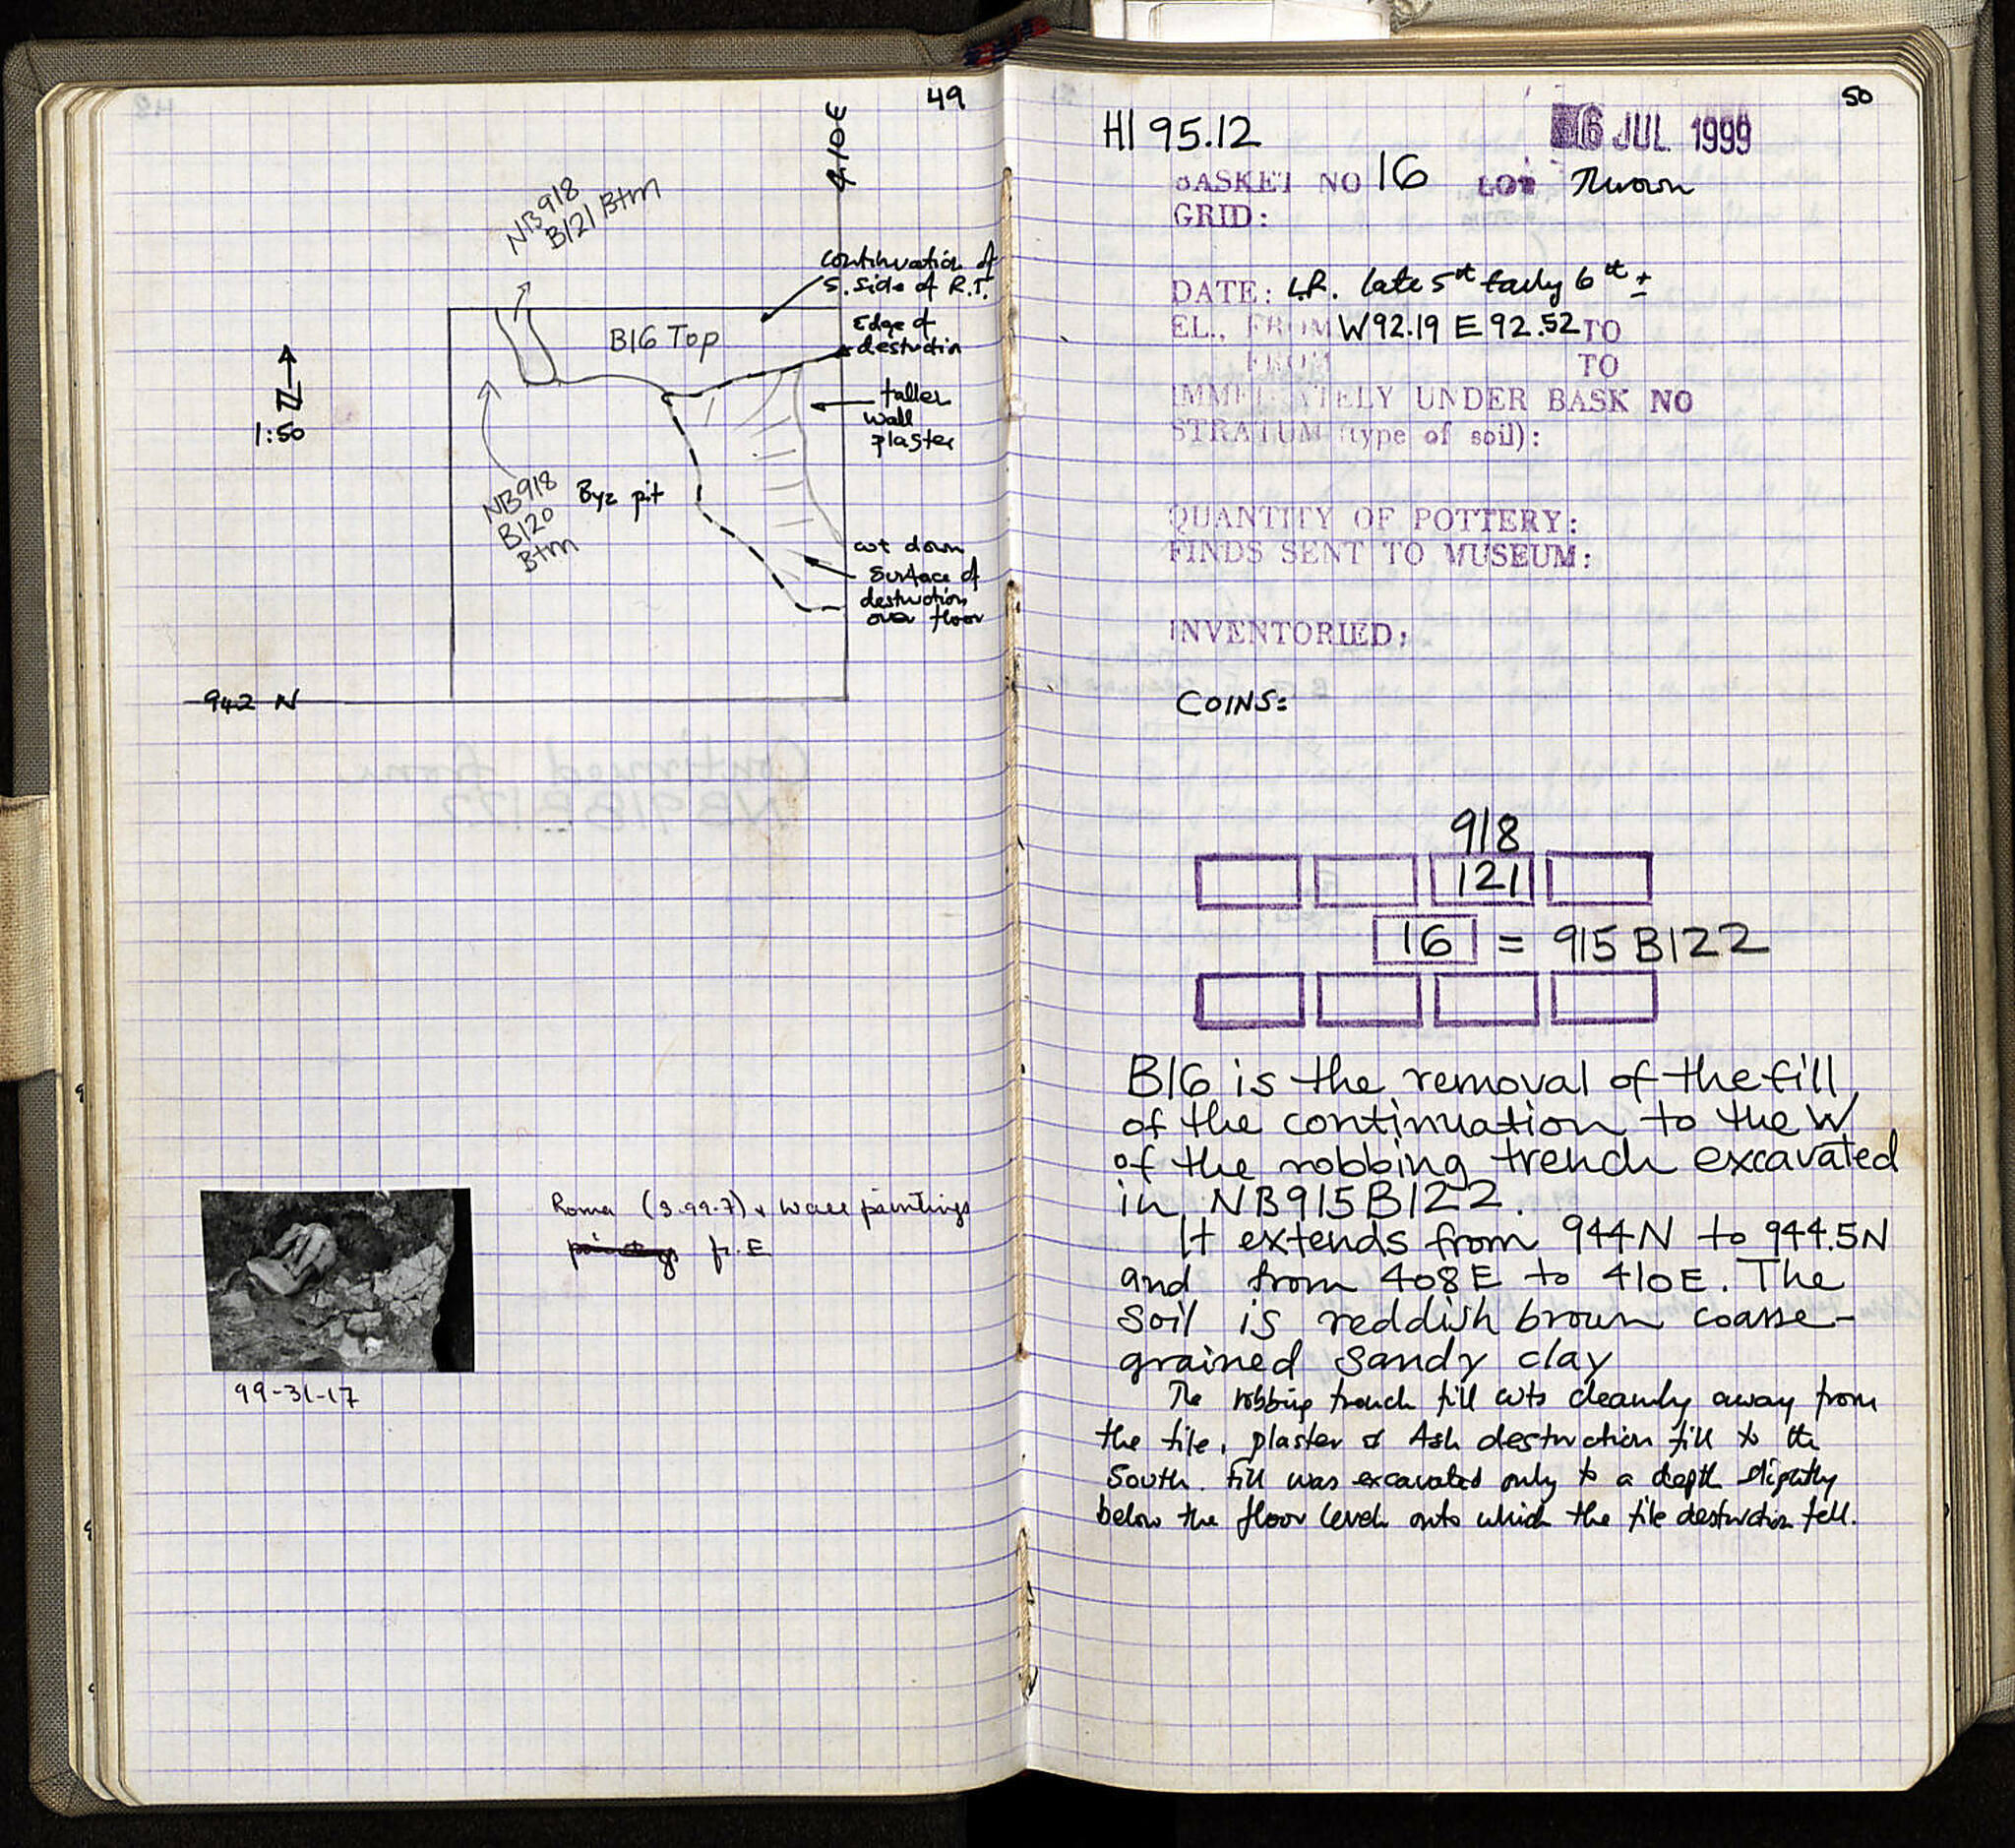 49
410E
NB918
B121 Btm
continuation of
S. side of R.T.
Edge of
destructin
B16 Top
fallen
wall
plaster
N
1:50
NB918
B120
Btm
Byz pit
cut down
surface of
destruction
over floor
942 N
Roma (3.99.7) + wall paintings
fr. E
99-31-17
50
HI 95.12
6 JUL 1999
BASKET NO 16 LOT Thrown
GRID:
DATE: L.R. late 5th early 6th ±
EL., FROM W92.19 E 92.52 TO
FROM TO
IMMEDIATELY UNDER BASK NO
STRATUM (type of soil):
QUANTITY OF POTTERY:
FINDS SENT TO MUSEUM:
INVENTORIED:
COINS:
918
121
16 = 915 B122
B16 is the removal of the fill
of the continuation to the W
of the robbing trench excavated
in NB915B122.
It extends from 944N to 944.5N
and from 408E to 410E. The
soil is reddish brown coarse-
grained sandy clay
The robbing trench fill cuts cleanly away from
the tile, plaster & Ash destruction fill to the
South. Fill was excavated only to a depth slightly
below the floor level onto which the tile destruction fell.